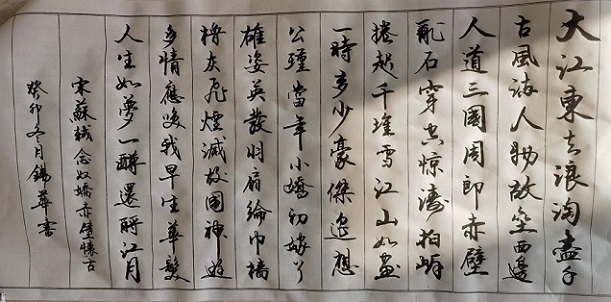 大江東去浪淘盡千
古風流人物故壘西邊
人道三國周郎赤壁
亂石穿空惊濤拍岸
捲起千堆雪江山如畫
一時多少豪傑遥想
公瑾當年小嬌初嫁了
雄姿英發羽扇綸巾檣
櫓灰飛煙滅故國神遊
多情應笑我早生華髮
人生如夢一樽還酹江月
宋蘇軾念奴嬌赤壁懷古
癸卯冬月錫華書